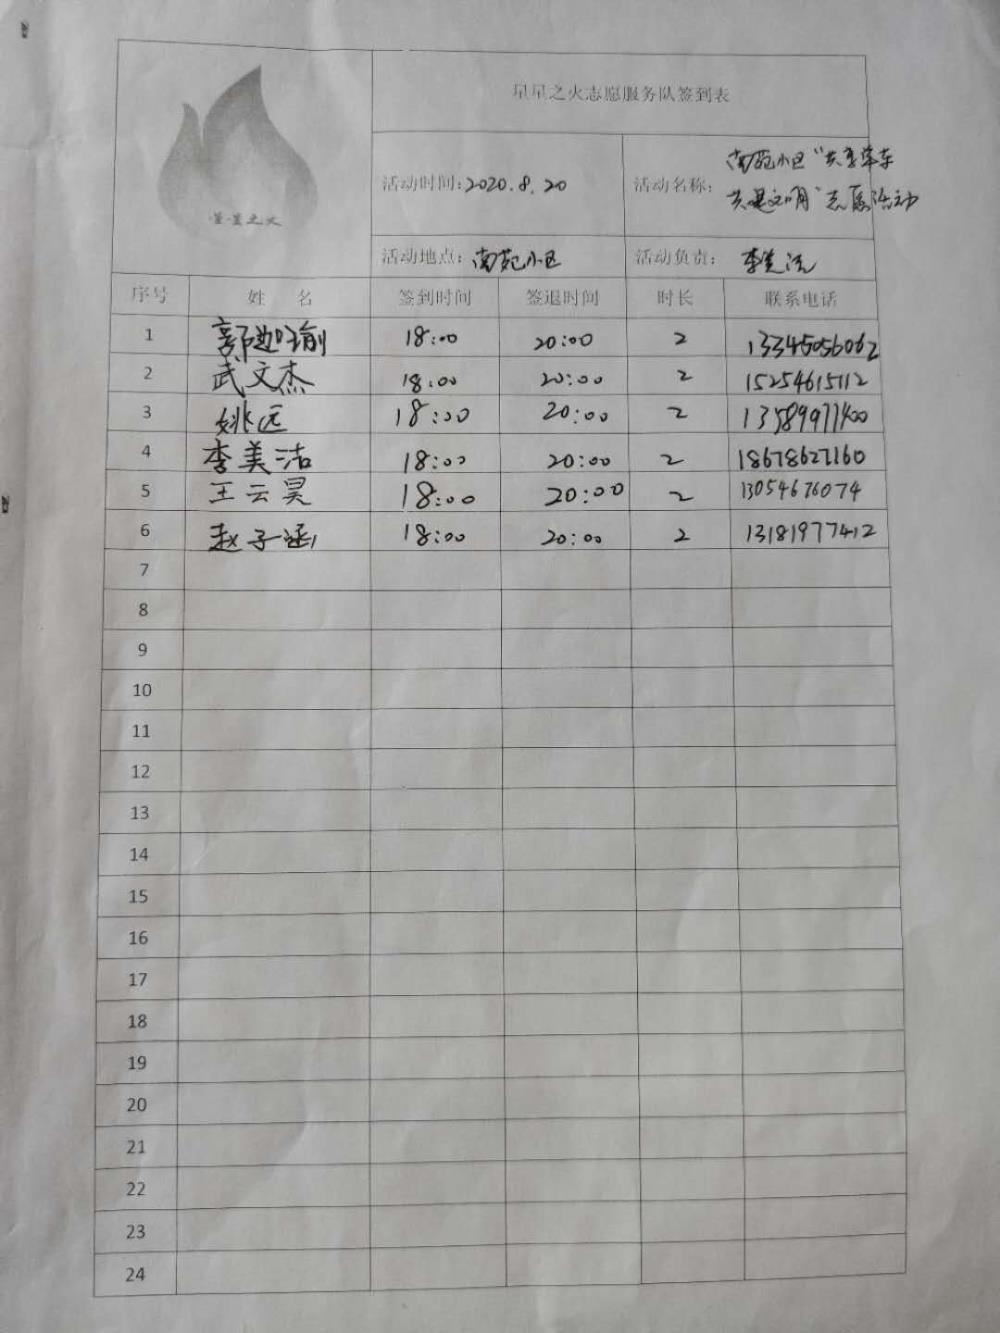 星星之火志愿服务队签到表
星星之火
活动时间：2020.8.20
活动名称：南苑小区“共享单车
共建文明”志愿活动
活动地点：南苑小区
活动负责：李美洁
序号 姓 名 签到时间 签退时间 时长 联系电话
1 郭迦瑜 18:00 20:00 2 13345056062
2 武文杰 18:00 20:00 2 15254615112
3 姚远 18:00 20:00 2 13589977400
4 李美洁 18:00 20:00 2 18678627160
5 王云昊 18:00 20:00 2 13054676074
6 赵子涵 18:00 20:00 2 13181977412
7
8
9
10
11
12
13
14
15
16
17
18
19
20
21
22
23
24